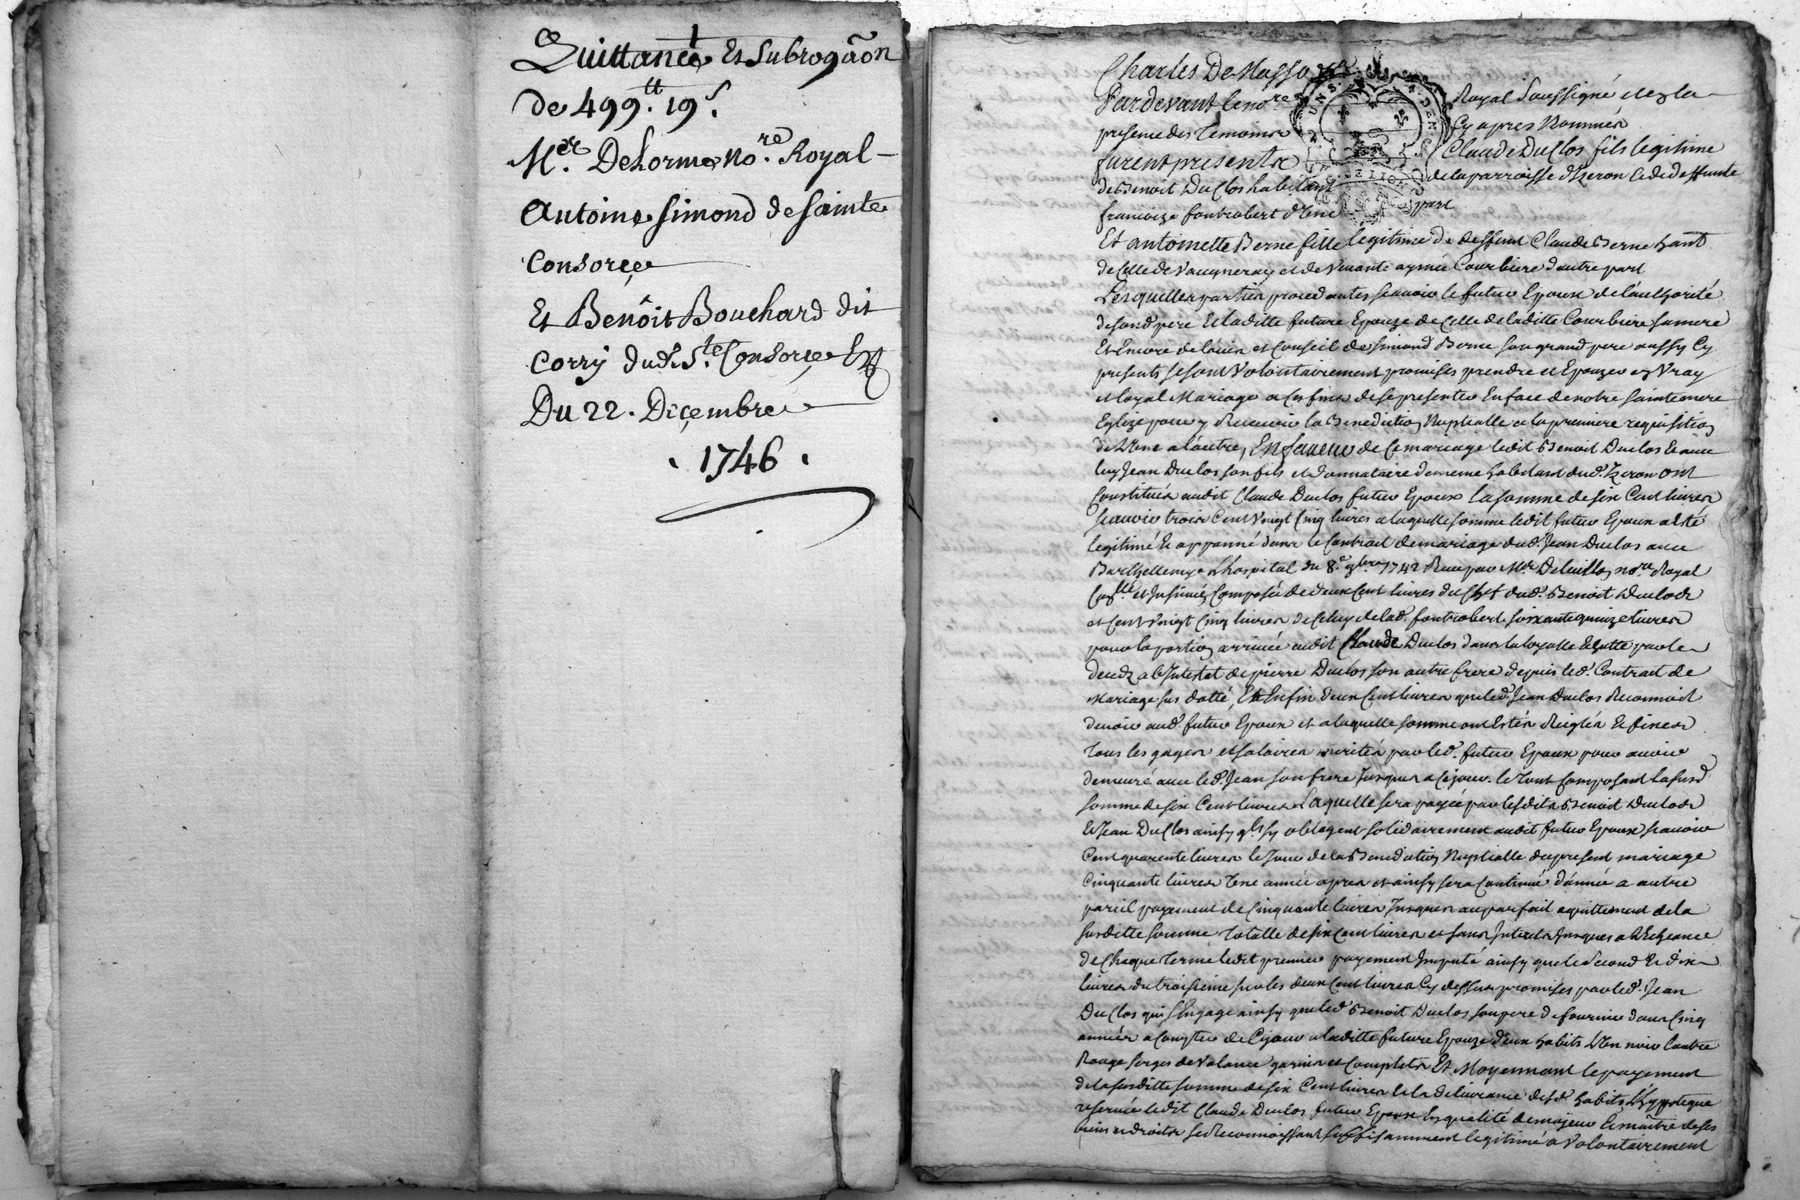 Quittance Et Subrogaõn
de 499.tt 19.s
Me.r Delorme No.re Royal
Antoine Simond de Sainte
Consorce
Et Benôit Bouchard dit
Corry dud. S.te Consorce
Du 22. Décembre
. 1746 .
Charles De Masso
Pardevant le no.re Royal Soussigné et en la
presence des Temoins Cy apres Nommés
furent presents Claude Duclos fils legitime
de Benoit Duclos habitant de la parroisse d'Izeron et de deffunte
francoize fontrobert d'Une part
Et antoinette Berne fille legitime de deffunt Claude Berne hãnt
de Celle de Vaugneray et de Vivante aymée Courbiere d'autre part
Lesquelles parties procedantes scavoir le futur Epoux de l'authorité
de sond. pere Et laditte future Epouze de Celle de laditte Courbiere sa mere
Et Encore de l'avis et Conseil de Simond Berne son grand pere aussy Cy
presents se sont Volontairement promises prendre et Epouzer en Vray
et loyal Mariage a Ces fins de se presenter En face de notre sainte mere
Eglize pour y Recevoir la Benediction Nuptialle a la premiere requisition
de L'Une a l'autre, En faveur de Ce mariage ledit Benoit Duclos Et avec
luy Jean Duclos son fils et donnataire de meme habitant dud. Izeron ont
Constitués audit Claude Duclos futur Epoux la somme de six Cent livres
scavoir trois Cent Vingt Cinq livres a laquelle somme ledit futur Epoux a Eté
legitimé Et appanné dans le Contrat de mariage dud. Jean Duclos avec
Barthellemye L'hospital du 8.e 9bre 1742 Receu par Me Deleullo, no.re Royal
et Insinué, Composée de deux Cent livres du Chef dud. Benoit Duclos
et Cent Vingt Cinq livres de Celuy de lad. fontrobert, soixante quinze livres
pour la portion arrivée audit Claude Duclos dans la loyalle Echutte par le
decedz ab Intestat de pierre Duclos son autre frere depuis led. Contrat de
Mariage sus datté, Et Enfin deux Cent livres que led. Jean Duclos Reconnoit
devoir aud. futur Epoux et a laquelle somme ont Estés Reiglés Et fixes
Tous les gages et salaires merités par led. futur Epoux pour avoir
demeuré avec led. Jean son frere Jusques a Ce jour. le Tout Composant la susd.
somme de six Cent livres Laquelle sera payée par lesdits Benoit Duclos
Et Jean Duclos ainsy qls sy obligent solidairement audit futur Epoux scavoir
Cent quarente livres le Jour de la Benediction Nuptialle du present mariage
Cinquante livres Une année apres et ainsy sera Continué d'année a autre
pareil payement de Cinquante livres Jusques au parfait aquittement de la
susditte somme Totalle de six Cent livres et sans Interets Jusques a L'Echeance
de Chaque Terme ledit premier payement Imputé ainsy que le Second Et dix
livres du troisieme sur les deux Cent livres Cy dessus promises par led. Jean
Duclos qui s'Engage ainsy que led. Benoit Duclos son pere de fournir dans Cinq
années a Compter de Ce jour a laditte future Epouze deux habits L'Un noir l'autre
Rouge serges de Valance garnis et Complets Et Moyennant le payement
de la susditte somme de six Cent livres Et la delivrance desd. habits L'hypoteque
reservée ledit Claude Duclos futur Epoux En qualité de majeur Et maitre de ses
biens et droits se Reconnoissant suffisamment legitimé a Volontairement